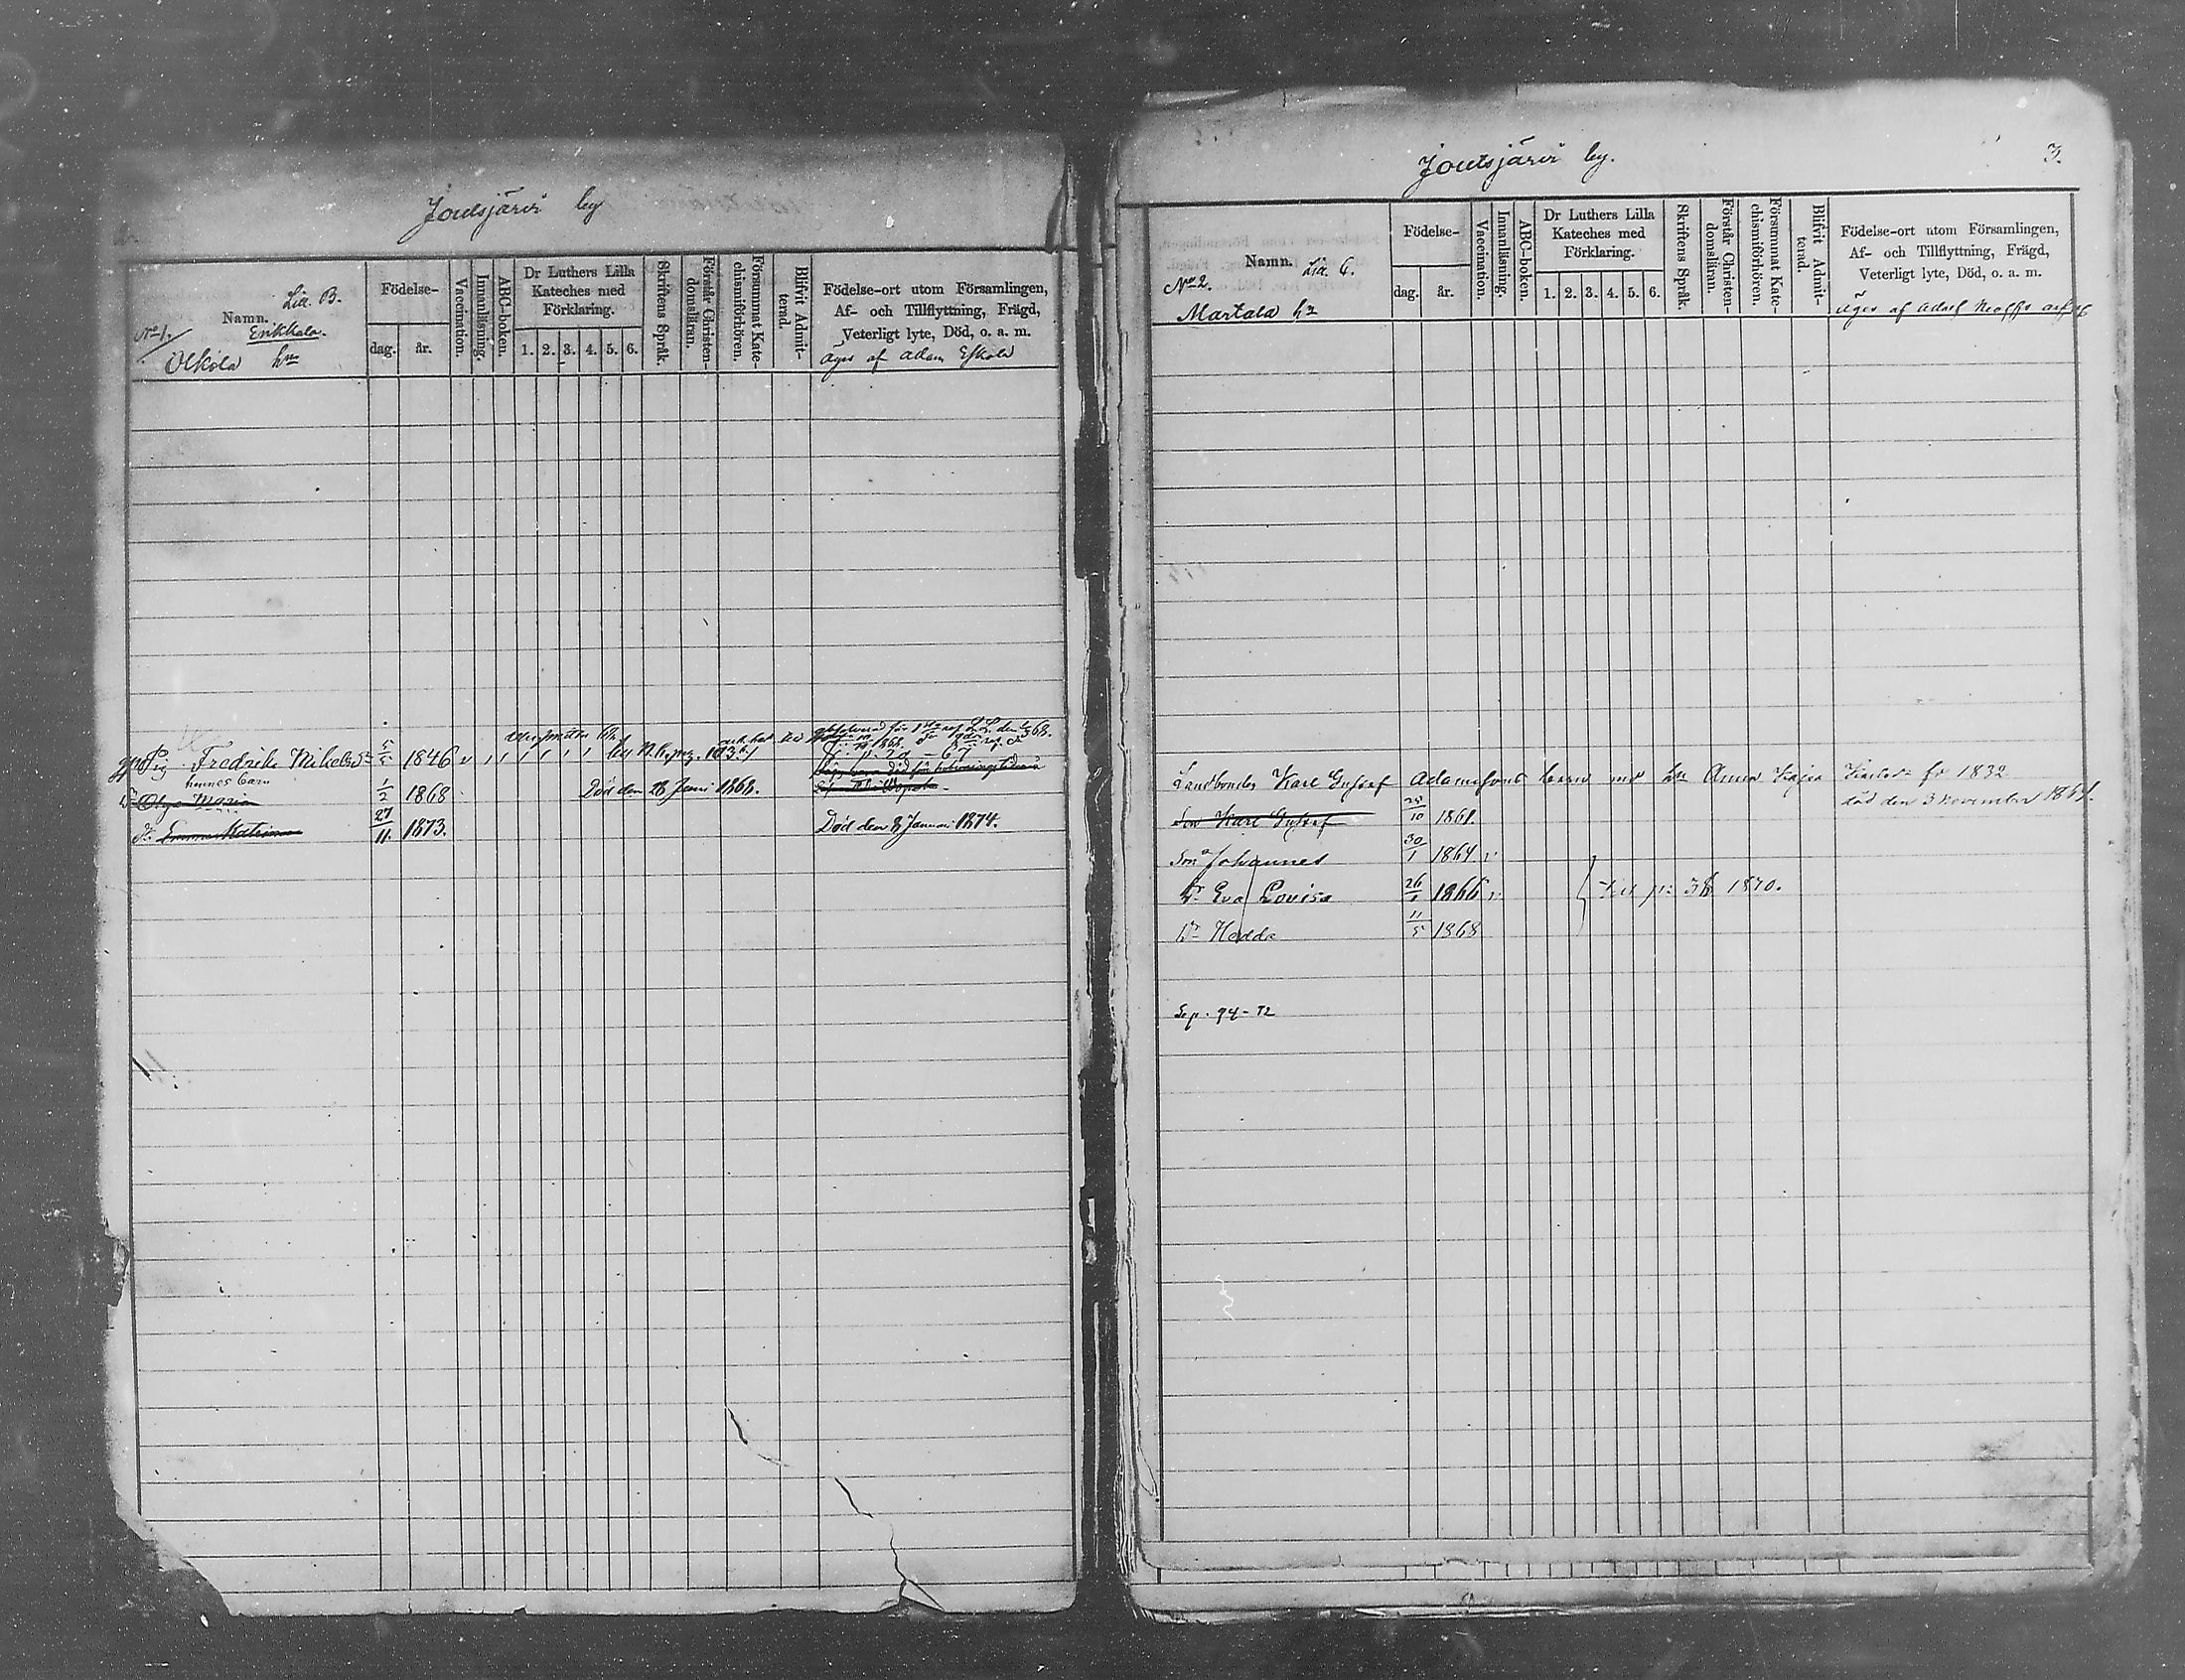 Joutsjärvi by
Litt. B.
Namn.
Erikkala.
No 1.
Olkola hn
Födelse-
dag. år.
Vaccination.
Innanläsning.
ABC-boken.
Dr Luthers Lilla
Kateches med
Förklaring.
1. 2. 3. 4. 5. 6.
Skriftens Språk.
Förstår Christen-
domsläran.
Försummat Kate-
chismiförhören.
Blifvit Admit-
terad.
Födelse-ort utom Församlingen,
Af- och Tillflyttning, Frägd,
Veterligt lyte, Död, o. a. m.
Äges af Adam Eskola
Pig. Fredrika Mikelsdr 5/5 1846
hennes barn
Dr Olga Maria 1/2 1868 Död den 28 Juni 1868.
Dr Emma Katrina 27/11 1873. Död den 8 Januari 1874.
Joutsjärvi by.
3.
Namn. Litt. C.
No 2.
Martala hn
Födelse-
dag. år.
Vaccination.
Innanläsning.
ABC-boken.
Dr Luthers Lilla
Kateches med
Förklaring.
1. 2. 3. 4. 5. 6.
Skriftens Språk.
Förstår Christen-
domsläran.
Försummat Kate-
chismiförhören.
Blifvit Admit-
terad.
Födelse-ort utom Församlingen,
Af- och Tillflyttning, Frägd,
Veterligt lyte, Död, o. a. m.
Äges af Adolf
Landbonden Karl Gustaf Adamssons barn med hu Anna Kajsa fd 1832
död den 3 November 1869.
Son Karl Gustaf 25/10 1861.
Son Johannes 30/1 1864
Dr Eva Lovisa 26/1 1866 1870.
Dr Hedda 11/5 1868
Sep. 94-72